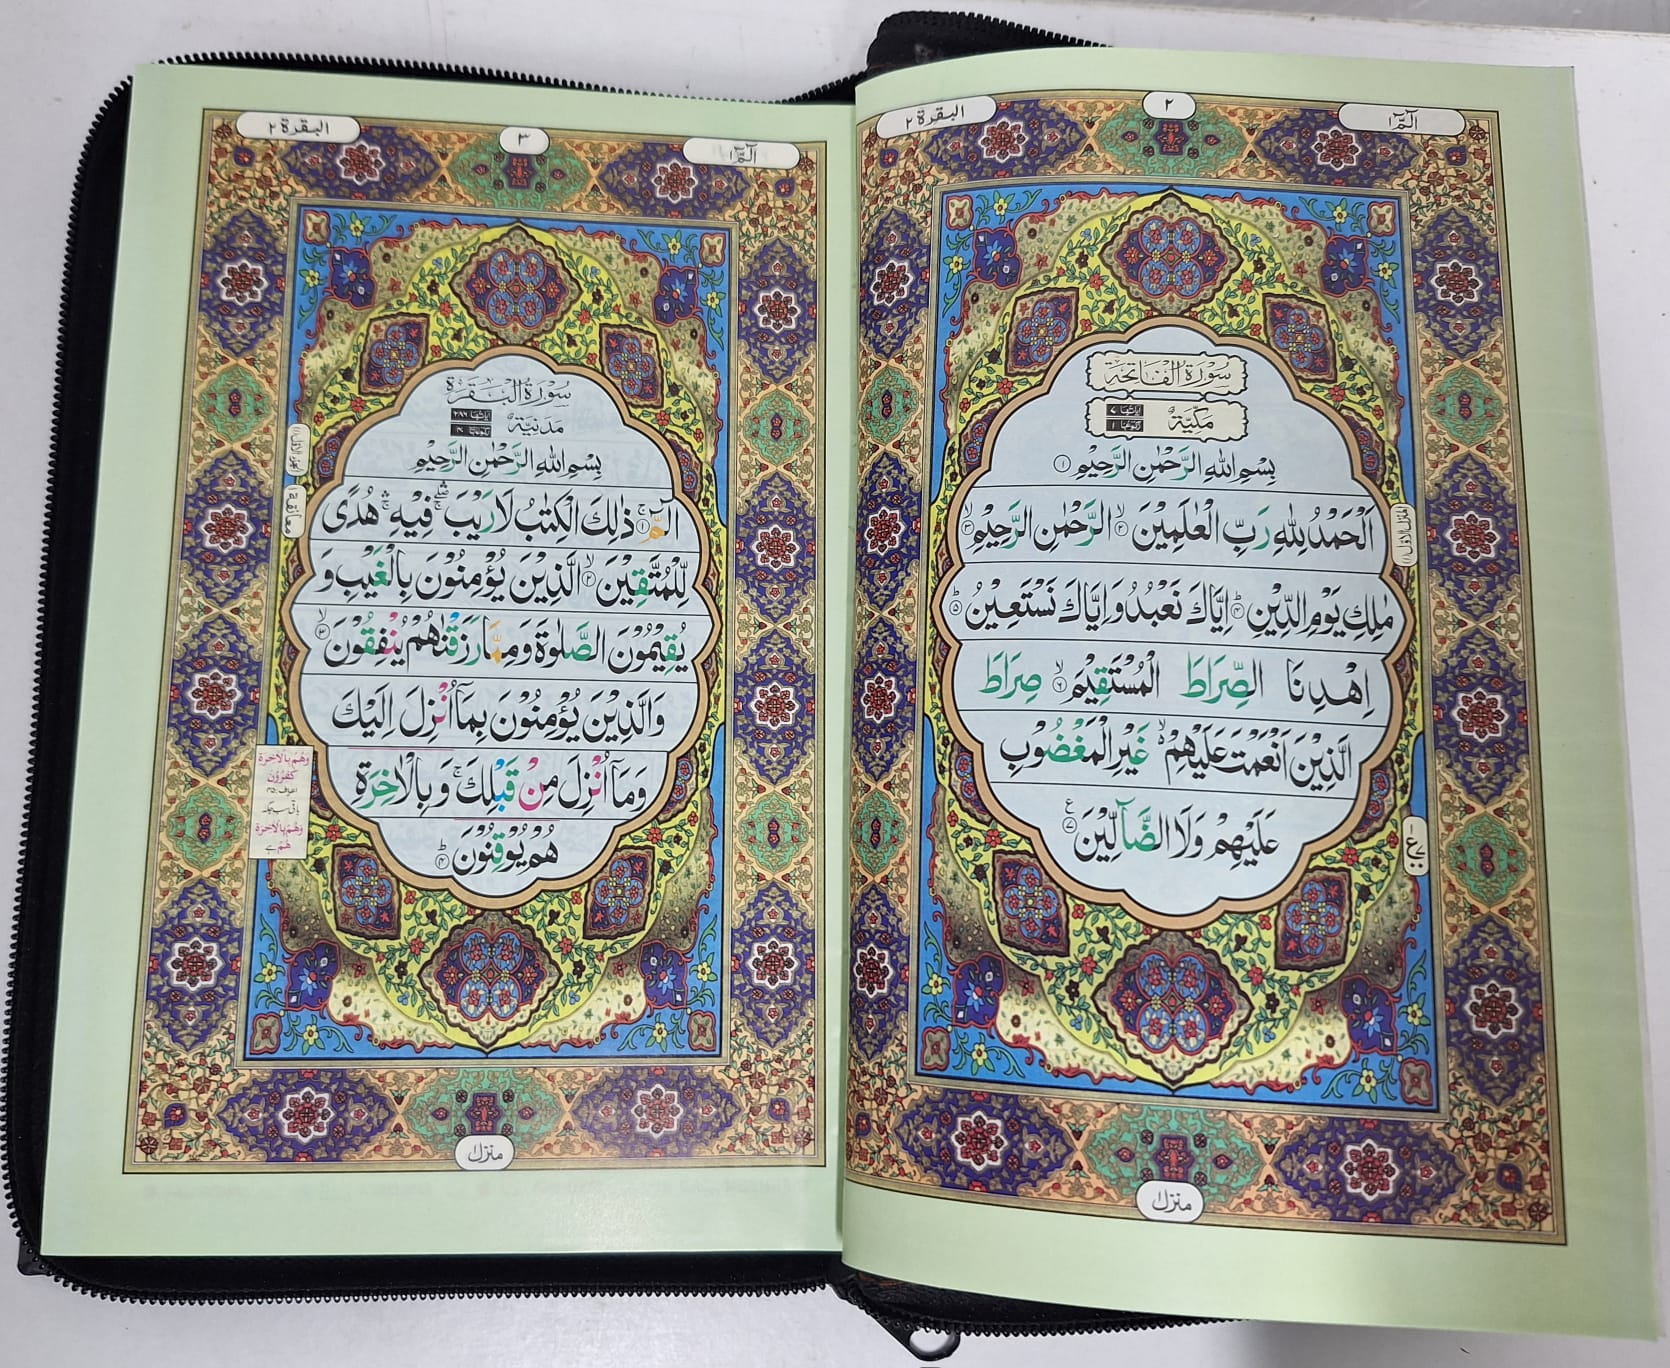 الٓمّٓ ١
٢
البقرة ٢
سُوْرَةُ الْفَاتِحَةِ
مَكِّيَّةٌ
اٰيَاتُهَا ٧
رُكُوْعُهَا ١
بِسْمِ اللّٰهِ الرَّحْمٰنِ الرَّحِيْمِ ١
اَلْحَمْدُ لِلّٰهِ رَبِّ الْعٰلَمِيْنَ ۙ ٢ الرَّحْمٰنِ الرَّحِيْمِ ۙ ٣
مٰلِكِ يَوْمِ الدِّيْنِ ؕ ٤ اِيَّاكَ نَعْبُدُ وَاِيَّاكَ نَسْتَعِيْنُ ؕ ٥
اِهْدِنَا الصِّرَاطَ الْمُسْتَقِيْمَ ۙ ٦ صِرَاطَ
الَّذِيْنَ اَنْعَمْتَ عَلَيْهِمْ ۙ غَيْرِ الْمَغْضُوْبِ
عَلَيْهِمْ وَلَا الضَّآلِّيْنَ ٧ ع
منزل ١
الٓمّٓ ١
٣
البقرة ٢
سُوْرَةُ الْبَقَرَةِ
مَدَنِيَّةٌ
اٰيَاتُهَا ٢٨٦
رُكُوْعُهَا ٤٠
بِسْمِ اللّٰهِ الرَّحْمٰنِ الرَّحِيْمِ
الٓمّٓ ۚ ١ ذٰلِكَ الْكِتٰبُ لَا رَيْبَ ۛۚ فِيْهِ ۛۚ هُدًى
لِّلْمُتَّقِيْنَ ۙ ٢ الَّذِيْنَ يُؤْمِنُوْنَ بِالْغَيْبِ وَ
يُقِيْمُوْنَ الصَّلٰوةَ وَمِمَّا رَزَقْنٰهُمْ يُنْفِقُوْنَ ۙ ٣
وَالَّذِيْنَ يُؤْمِنُوْنَ بِمَاۤ اُنْزِلَ اِلَيْكَ
وَمَاۤ اُنْزِلَ مِنْ قَبْلِكَ ۚ وَبِالْاٰخِرَةِ
هُمْ يُوْقِنُوْنَ ؕ ٤
معانقة
وَهُمْ بِالْاٰخِرَةِ
كٰفِرُوْنَ
باقی سب جگہ
وَهُمْ بِالْاٰخِرَةِ
هُمْ ہے
منزل ١